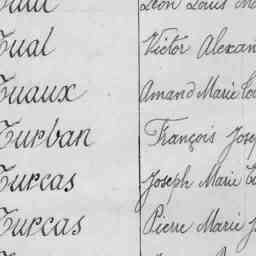 Léon Louis
Tual Victor Alexan
Tuaux Amand Marie
Turban François Jose
Turcas Joseph Marie
Turcas Pierre Marie J